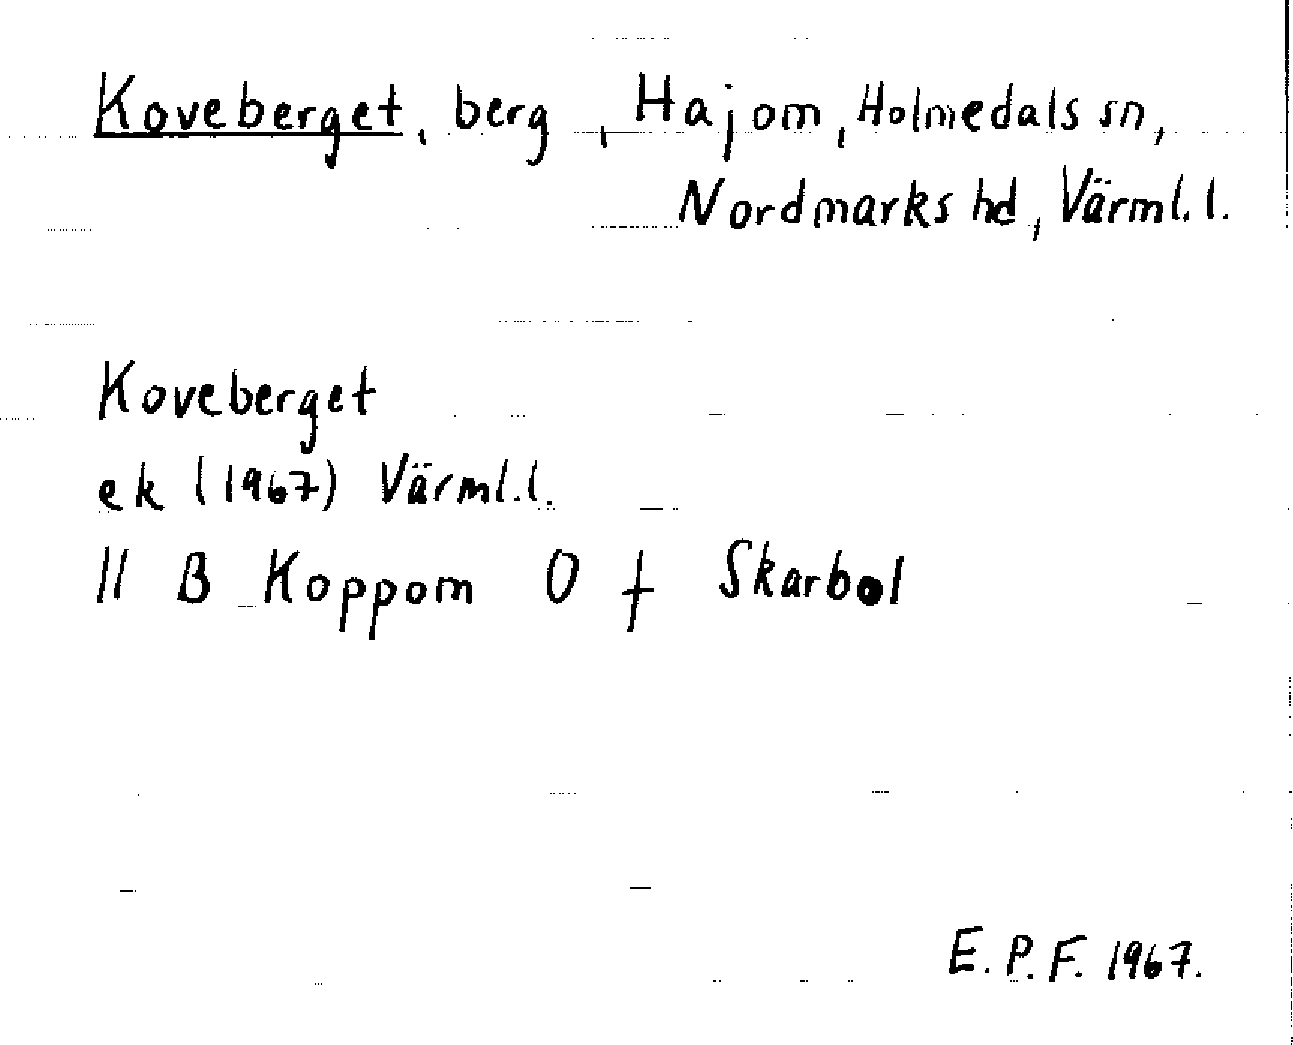 Koveberget, berg, Hajom, Holmedals sn,
Nordmarks hd, Värml. l.
Koveberget
ek (1967) Värml. l.
// B Koppom O f Skarbol
E. P. F. 1967.